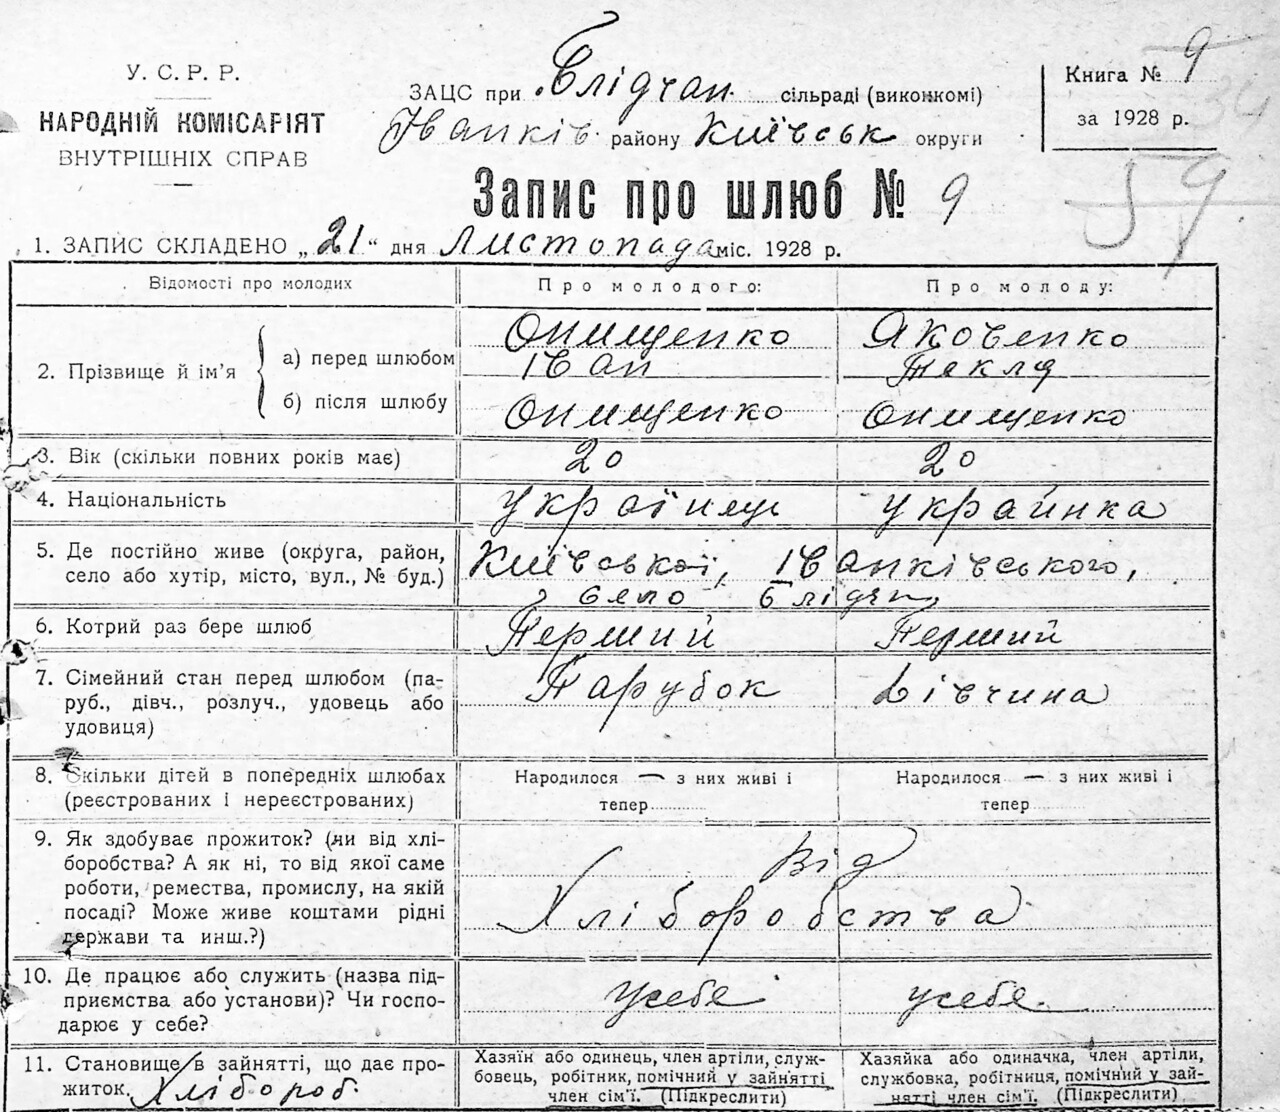 У. С. Р. Р.
НАРОДНІЙ КОМІСАРІЯТ
ВНУТРІШНІХ СПРАВ
ЗАЦС при Блідчан. сільраді (виконкомі)
Іванків. району Київськ округи
Книга № 9
за 1928 р.
34
59
Запис про шлюб № 9
1. ЗАПИС СКЛАДЕНО „21“ дня Листопада міс. 1928 р.
Відомості про молодих
Про молодого:
Про молоду:
2. Прізвище й ім’я
а) перед шлюбом
Онищенко
Іван
Яковенко
Текля
б) після шлюбу
Онищенко
Онищенко
3. Вік (скільки повних років має)
20
20
4. Національність
Українець
Украйнка
5. Де постійно живе (округа, район,
село або хутір, місто, вул., № буд.)
Київської, Іванківського,
село Блідчі
6. Котрий раз бере шлюб
Перший
Перший
7. Сімейний стан перед шлюбом (па-
руб., дівч., розлуч., удовець або
удовиця)
Парубок
Дівчина
8. Скільки дітей в попередніх шлюбах
(реєстрованих і нереєстрованих)
Народилося — з них живі і
тепер
Народилося — з них живі і
тепер
9. Як здобуває прожиток? (чи від хлі-
боробства? А як ні, то від якої саме
роботи, ремества, промислу, на якій
посаді? Може живе коштами рідні
держави та инш.?)
Від
Хліборобства
10. Де працює або служить (назва під-
приємства або установи)? Чи госпо-
дарює у себе?
усебе
усебе.
11. Становище в зайнятті, що дає про-
житок. Хлібороб.
Хазяїн або одинець, член артіли, служ-
бовець, робітник, помічний у зайнятті
член сім’ї. (Підкреслити)
Хазяйка або одиначка, член артіли,
службовка, робітниця, помічний у зай-
нятті член сім’ї. (Підкреслити)